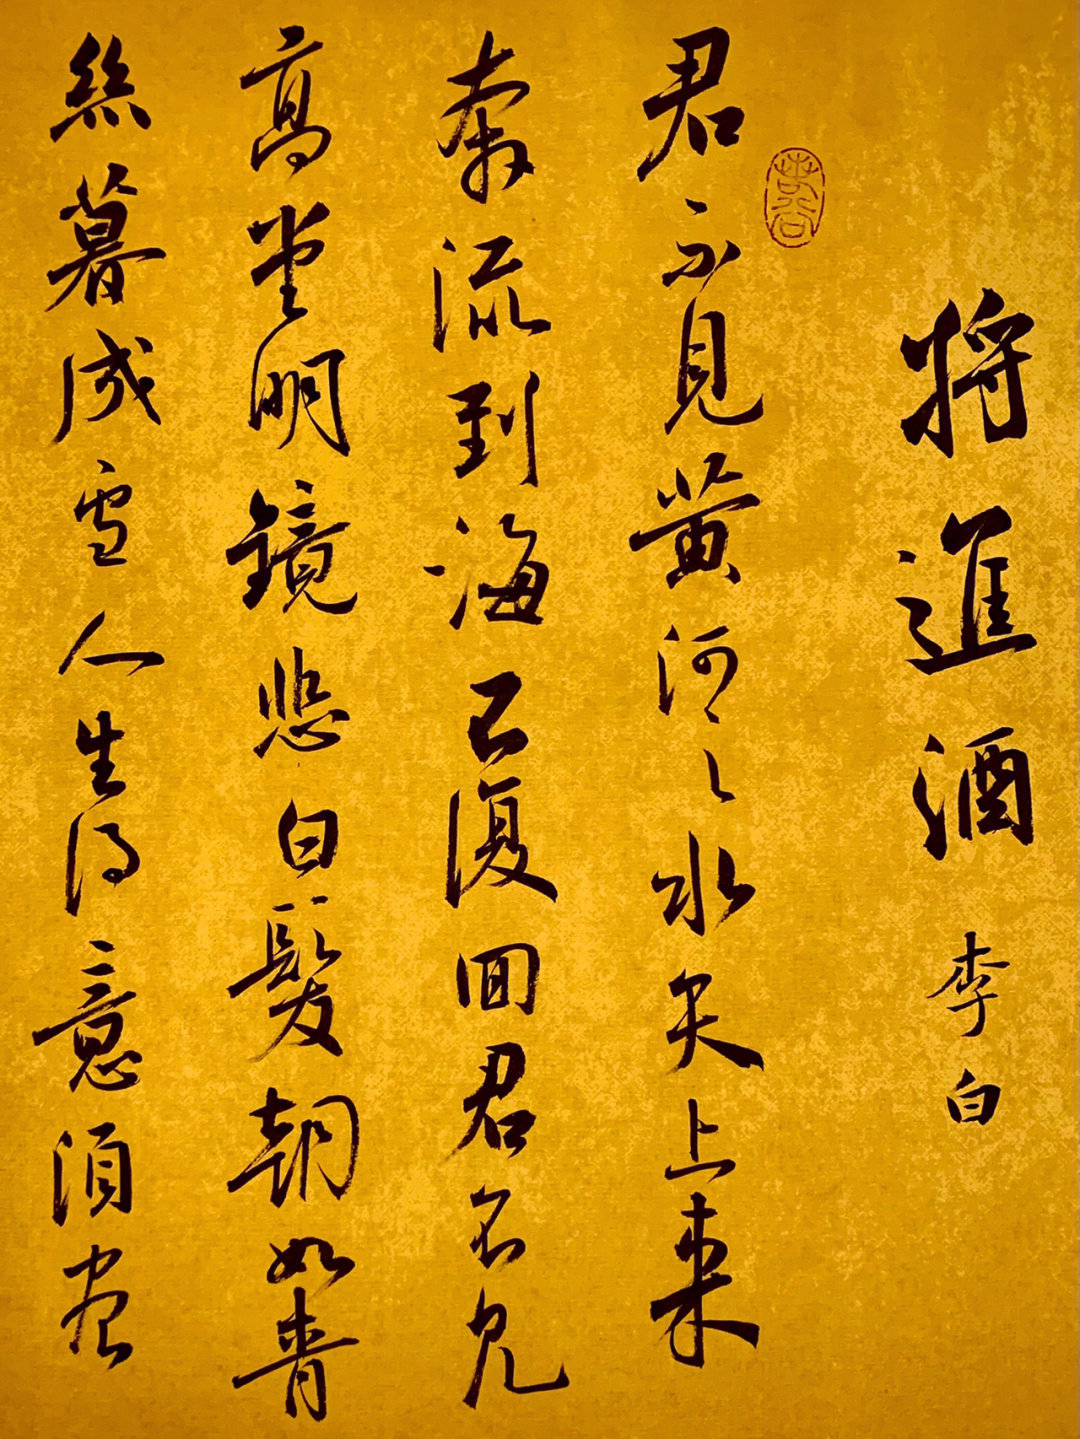 將進酒
李白
君不見黃河之水天上來
奔流到海不復回君不見
高堂明鏡悲白髮朝如青
絲暮成雪人生得意須盡